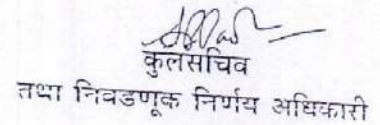 कुलसचिव
तथा निवडणूक निर्णय अधिकारी